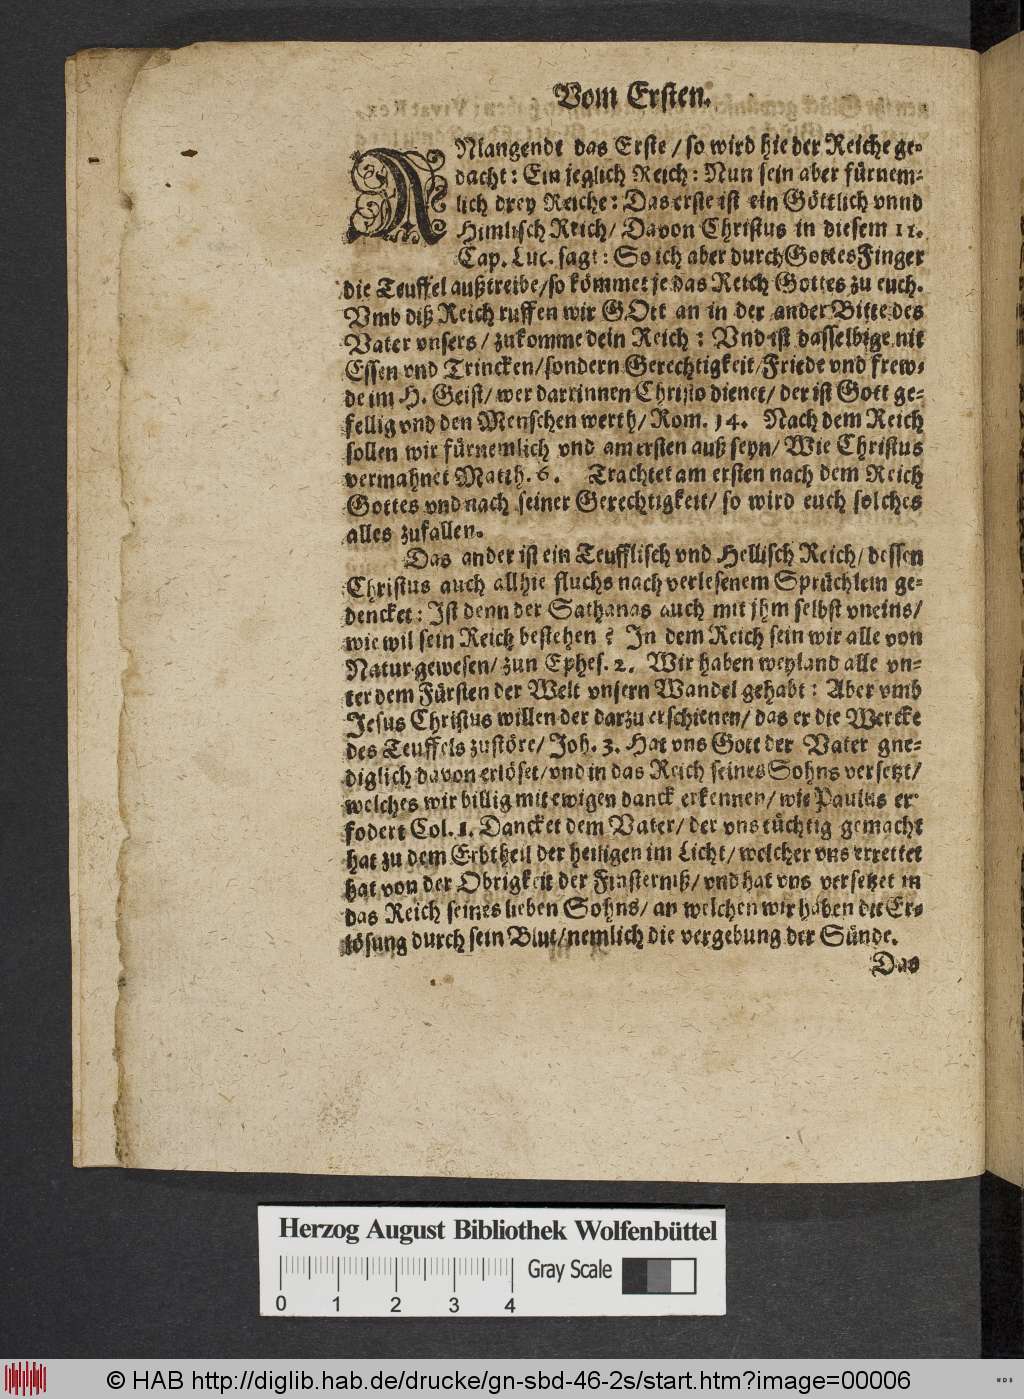 Vom Ersten.
ANlangende das Erste / so wird hie der Reiche ge-
dacht: Ein jeglich Reich: Nun sein aber fürnem-
lich drey Reiche: Das erste ist ein Göttlich vnnd
Himlisch Reich/ Davon Christus in diesem 11.
Cap. Luc. sagt: So ich aber durch Gottes Finger
die Teuffel außtreibe/so kömmet je das Reich Gottes zu euch.
Vmb diß Reich ruffen wir GOtt an in der ander Bitte des
Vater vnsers / zukomme dein Reich: Vnd ist dasselbige nit
Essen vnd Trincken/sondern Gerechtigkeit/Friede vnd frew-
de im H. Geist/ wer darrinnen Christo dienet/ der ist Gott ge-
fellig vnd den Menschen werth/ Rom. 14. Nach dem Reich
sollen wir fürnemlich vnd am ersten auß seyn/ Wie Christus
vermahnet Matth. 6. Trachtet am ersten nach dem Reich
Gottes vnd nach seiner Gerechtigkeit/ so wird euch solches
alles zufallen.
Das ander ist ein Teufflisch vnd Hellisch Reich/ dessen
Christus auch allhie fluchs nach verlesenem Sprüchlein ge-
dencket: Ist denn der Sathanas auch mit jhm selbst vneins/
wie wil sein Reich bestehen? In dem Reich sein wir alle von
Natur gewesen/ zun Ephes. 2. Wir haben weyland alle vn-
ter dem Fürsten der Welt vnsern Wandel gehabt: Aber vmb
Jesus Christus willen der darzu erschienen/ das er die Wercke
des Teuffels zustöre/ Joh. 3. Hat vns Gott der Vater gne-
diglich davon erlöset/vnd in das Reich seines Sohns versetzt/
welches wir billig mit ewigen danck erkennen/ wie Paulus er-
fodert Col. 1. Dancket dem Vater/ der vns tüchtig gemacht
hat zu dem Erbtheil der heiligen im Licht/ welcher vns errettet
hat von der Obrigkeit der Finsterniß/ vnd hat vns versetzet in
das Reich seines lieben Sohns/ an welchen wir haben die Er-
lösung durch sein Blut/nemlich die vergebung der Sünde.
Das
Herzog August Bibliothek Wolfenbüttel
Gray Scale
0 1 2 3 4
© HAB http://diglib.hab.de/drucke/gn-sbd-46-2s/start.htm?image=00006